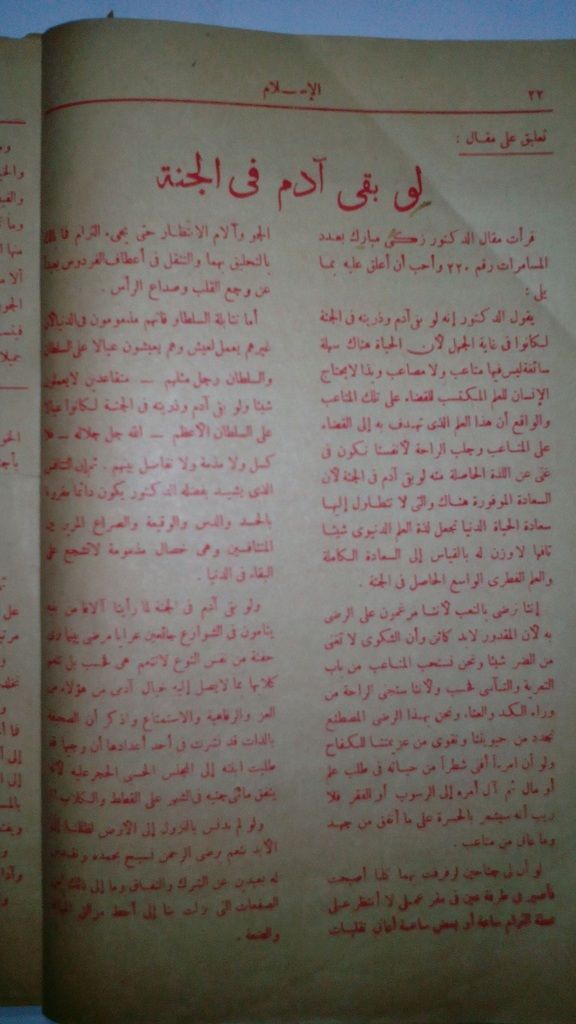 ٢٢
الإسلام
تعليق على مقال :
لو بقى آدم فى الجنة
قرأت مقال الدكتور زكى مبارك بعدد
المسامرات رقم ٢٢٠ وأحب أن أعلق عليه بما
يلى :
يقول الدكتور إنه لو بقى آدم وذريته فى الجنة
لكانوا فى غاية الجهل لأن الحياة هناك سهلة
سائغة ليس فيها متاعب ولا مصاعب وبذا لا يحتاج
الإنسان للعلم المكتسب للقضاء على تلك المتاعب
والواقع أن هذا العلم الذى تهدف به إلى القضاء
على المتاعب وجلب الراحة لأنفسنا نكون فى
غنى عن اللذة الحاصلة منه لو بقى آدم فى الجنة لأن
السعادة الموفورة هناك والتى لا تتطاول إليها
سعادة الحياة الدنيا تجعل لذة العلم الدنيوى شيئا
تافها لا وزن له بالقياس إلى السعادة الكاملة
والعلم الفطرى الواسع الحاصل فى الجنة .
إننا نرضى بالتعب لأننا مرغمون على الرضى
به لأن المقدور لابد كائن وأن الشكوى لا تغنى
من الضر شيئا ونحن نستحب المتاعب من باب
التعزية والتأسى فحسب ولأننا سنجنى الراحة من
وراء الكد والعناء ونحن بهذا الرضى المصطنع
نجدد من حيويتنا ونقوى من عزيمتنا للكفاح
ولو أن امرءاً أفنى شطراً من حياته فى طلب علم
أو مال ثم آل أمره إلى الرسوب أو الفقر فلا
ريب أنه سيشعر بالحسرة على ما أنفق من جهد
وما عانى من متاعب .
لو أن لى جناحين لرفرفت بهما كلما أصبحت
فأصير فى طرفة عين فى مقر عملى لا أنتظر على
محطة الترام ساعة أو بعض ساعة أعانى تقلبات
الجو وآلام الانتظار حتى يجىء الترام
بالتحليق بهما والتنقل فى أعطاف الفردوس بعيداً
عن وجع القلب وصداع الرأس .
أما تنابلة السلطان فانهم مذمومون فى الدنيا لأن
غيرهم يعمل لعيش وهم يعيشون عيالا على السلطان
والسلطان رجل مثلهم — متقاعدين لا يعملون
شيئا ولو بقى آدم وذريته فى الجنة لكانوا عيالا
على السلطان الأعظم — الله جل جلاله — فلا
كسل ولا مذمة ولا تفاضل بينهم . ثم إن التنافس
الذى يشيد بفضله الدكتور يكون دائما مقرونا
بالحسد والدس والوقيعة والصراع المرير بين
المتنافسين وهى خصال مذمومة لا تشجع على
البقاء فى الدنيا .
ولو بقى آدم فى الجنة لما رأينا آلافا من بنيه
ينامون فى الشوارع جائعين عرايا مرضى بينما نرى
حفنة من نفس النوع لا تنعم هى فحسب بل تنعم
كلابها بما لا يصل إليه خيال آدمى من هؤلاء من
العز والرفاهية والاستمتاع واذكر أن الصحيفة
بالذات قد نشرت فى أحد أعدادها أن وجيها قد
طلبت ابنته إلى المجلس الحسبى الحجر عليه لأنه
ينفق مائتى جنيه فى الشهر على القطط والكلاب !
ولو لم ندنس بالنزول إلى الأرض لظللنا إلى
الأبد ننعم برضى الرحمن نسبح بحمده ونقدس
له بعيدين عن الشرك والنفاق وما إلى ذلك من
الصفات التى نزلت بنا إلى أحط مراتى
والضعة .